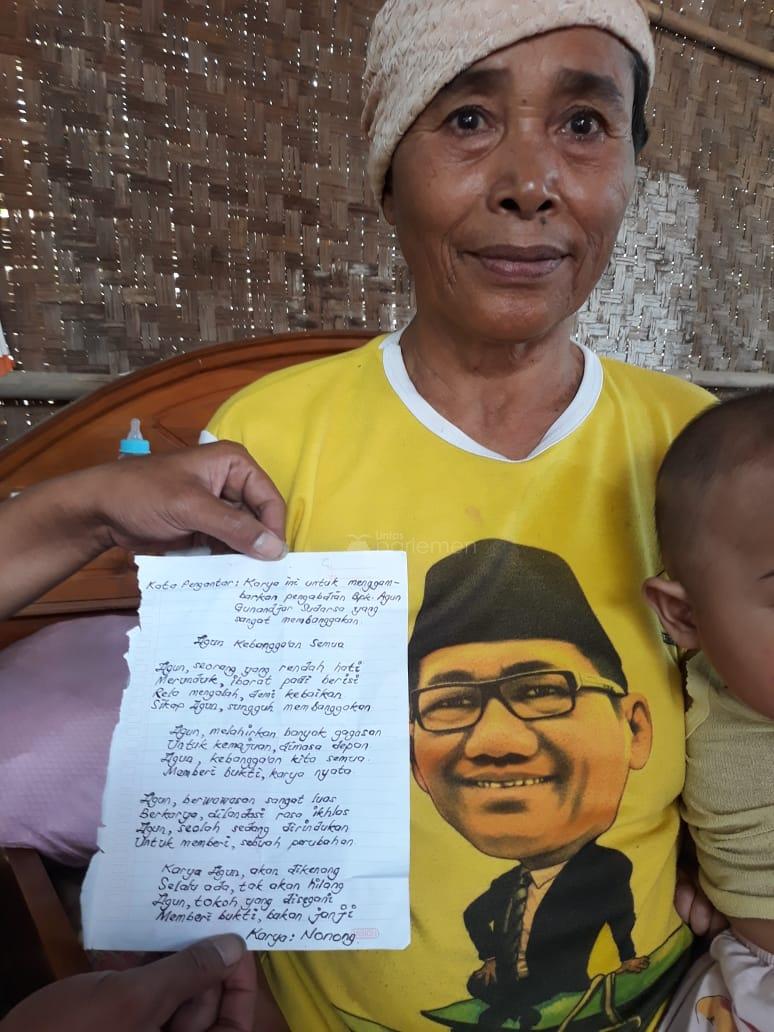 Lintas
parlemen
Kata Pengantar: Karya ini untuk menggam-
barkan pengabdian Bpk. Agun
Gunandjar Sudarsa yang
sangat membanggakan
Agun Kebanggaan Semua
Agun, seorang yang rendah hati
Merunduk, ibarat padi berisi
Rela mengalah, demi kebaikan
Sikap Agun, sungguh membanggakan
Agun, melahirkan banyak gagasan
Untuk kemajuan, dimasa depan
Agun, kebanggaan kita semua
Memberi bukti, karya nyata
Agun, berwawasan sangat luas
Berkarya, dilandasi rasa ikhlas
Agun, seolah sedang dirindukan
Untuk memberi, sebuah perubahan
Karya Agun, akan dikenang
Selalu ada, tak akan hilang
Agun, tokoh yang disegani
Memberi bukti, bukan janji
Karya: Nonong